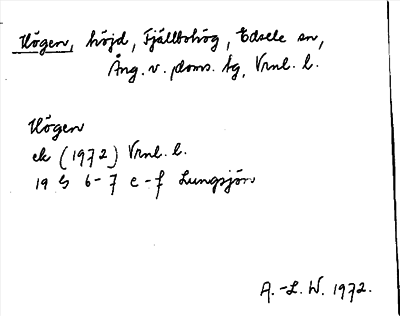 Högen, höjd, Fjällbohög, Edsele sn,
Ång. v. doms. tg, Vrnl. l.
Högen
ek (1972) Vrnl. l.
19 G 6-7 e-f Lungsjön
A.-L. W. 1972.